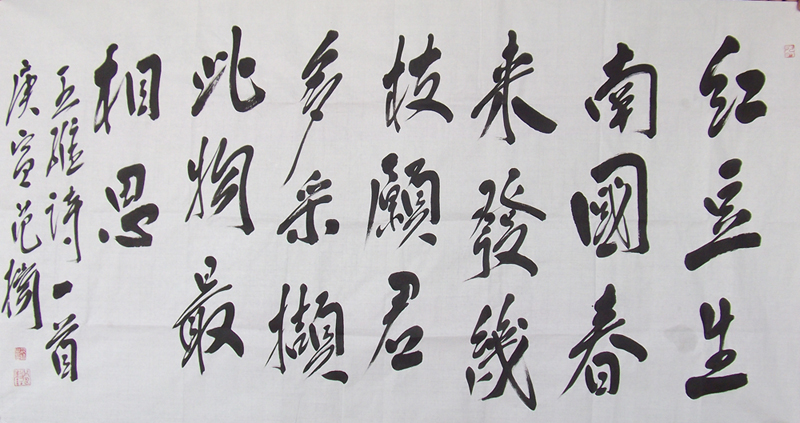 紅豆生
南國春
来發幾
枝願君
多采擷
此物最
相思
王維詩一首
庚寅范楠